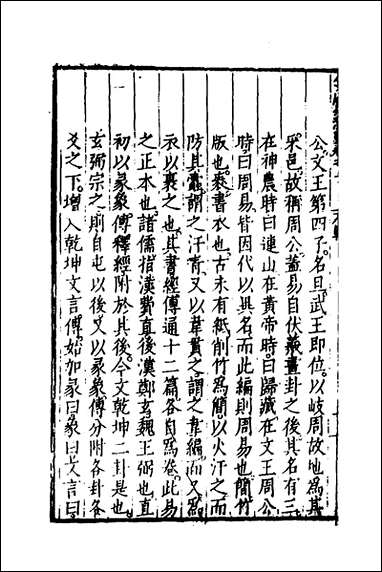 公文王第四子名旦武王即位以岐周故地爲其
采邑故稱周公蓋易自伏羲畫卦之後其名有三
在神農時曰連山在黃帝時曰歸藏在文王周公
時曰周易皆因代以異名而此編則周易也簡竹
版也袠書衣也古未有紙削竹爲簡以火汗之而
防其蠹謂之汗青又以韋貫之謂之韋編而又爲
衣以裹之也其書經傳通十二篇各自爲卷此易
之正本也諸儒指漢費直後漢鄭玄魏王弼也直
初以彖象傳釋經附於其後今文乾坤二卦是也
玄弼宗之則自屯以後又以彖象傳分附各卦各
爻之下增入乾坤文言傳始加彖曰象曰文言曰